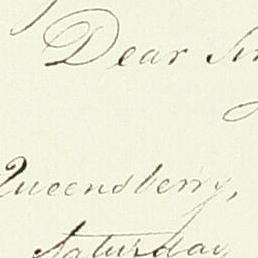 Dear Sir
Queensberry,
Saturday